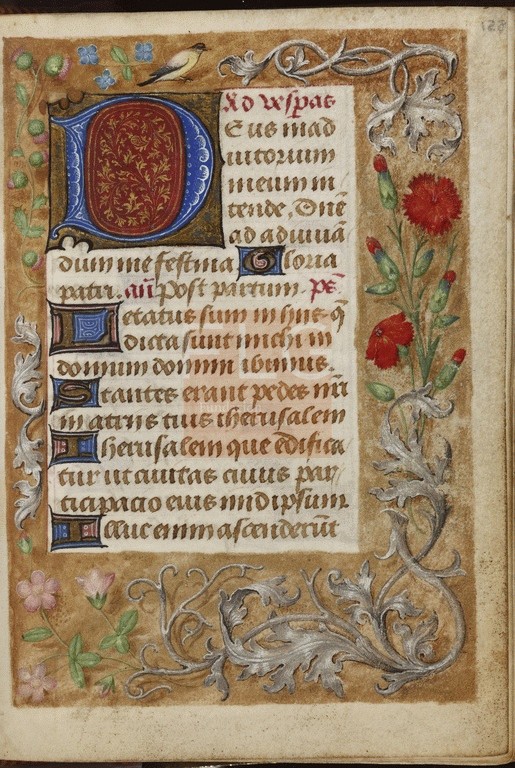 122
Ad vesp̃as
Deus in ad
iutorium
meum in
tende. Dñe
ad adiuuã
dum me festina. Gloria
patri. añ Post partum. ps̃
Letatus sum in hijs q̃
dicta sunt michi in
domum domini ibimus.
Stantes erant pedes nr̃i
in atriis tuis iherusalem
Iherusalem que edifica
tur ut ciuitas cuius par
ticipacio eius in idipsum.
Illuc enim ascenderũt